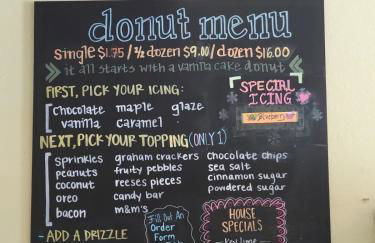 donut menu
single $1.75 / 1/2 dozen $9.00 / dozen $16.00
it all starts with a vanilla cake donut
FIRST, PICK YOUR ICING:
chocolate maple glaze
vanilla caramel
SPECIAL
ICING
Blueberry
NEXT, PICK YOUR TOPPING (ONLY 1)
sprinkles graham crackers chocolate chips
peanuts fruity pebbles sea salt
coconut reeses pieces cinnamon sugar
oreo candy bar powdered sugar
bacon m&m's
Fill Out An
Order
Form
HOUSE
SPECIALS
- ADD A DRIZZLE
key lime